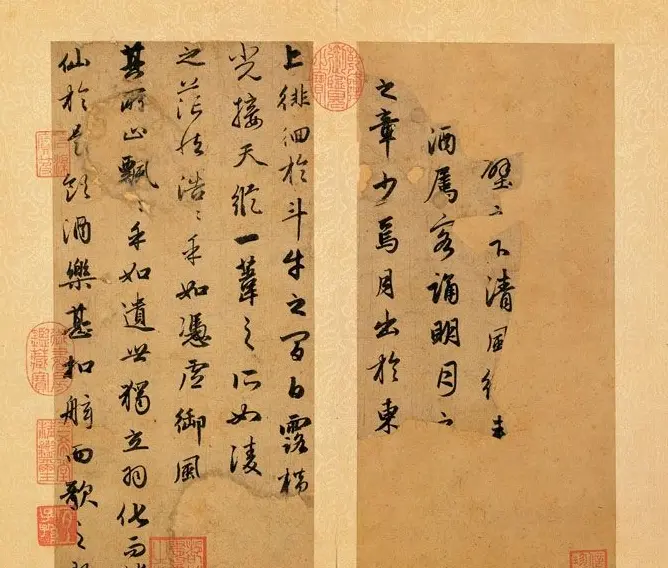 壁〻下清風徐来
酒属客誦明月〻
之章少焉月出於東
上徘徊於斗牛之間白露横
光接天縱一葦之所如陵
之茫然浩〻乎如憑虛御風
其所止飄〻乎如遺世獨立羽化而
仙於是飲酒樂甚扣舷而歌之